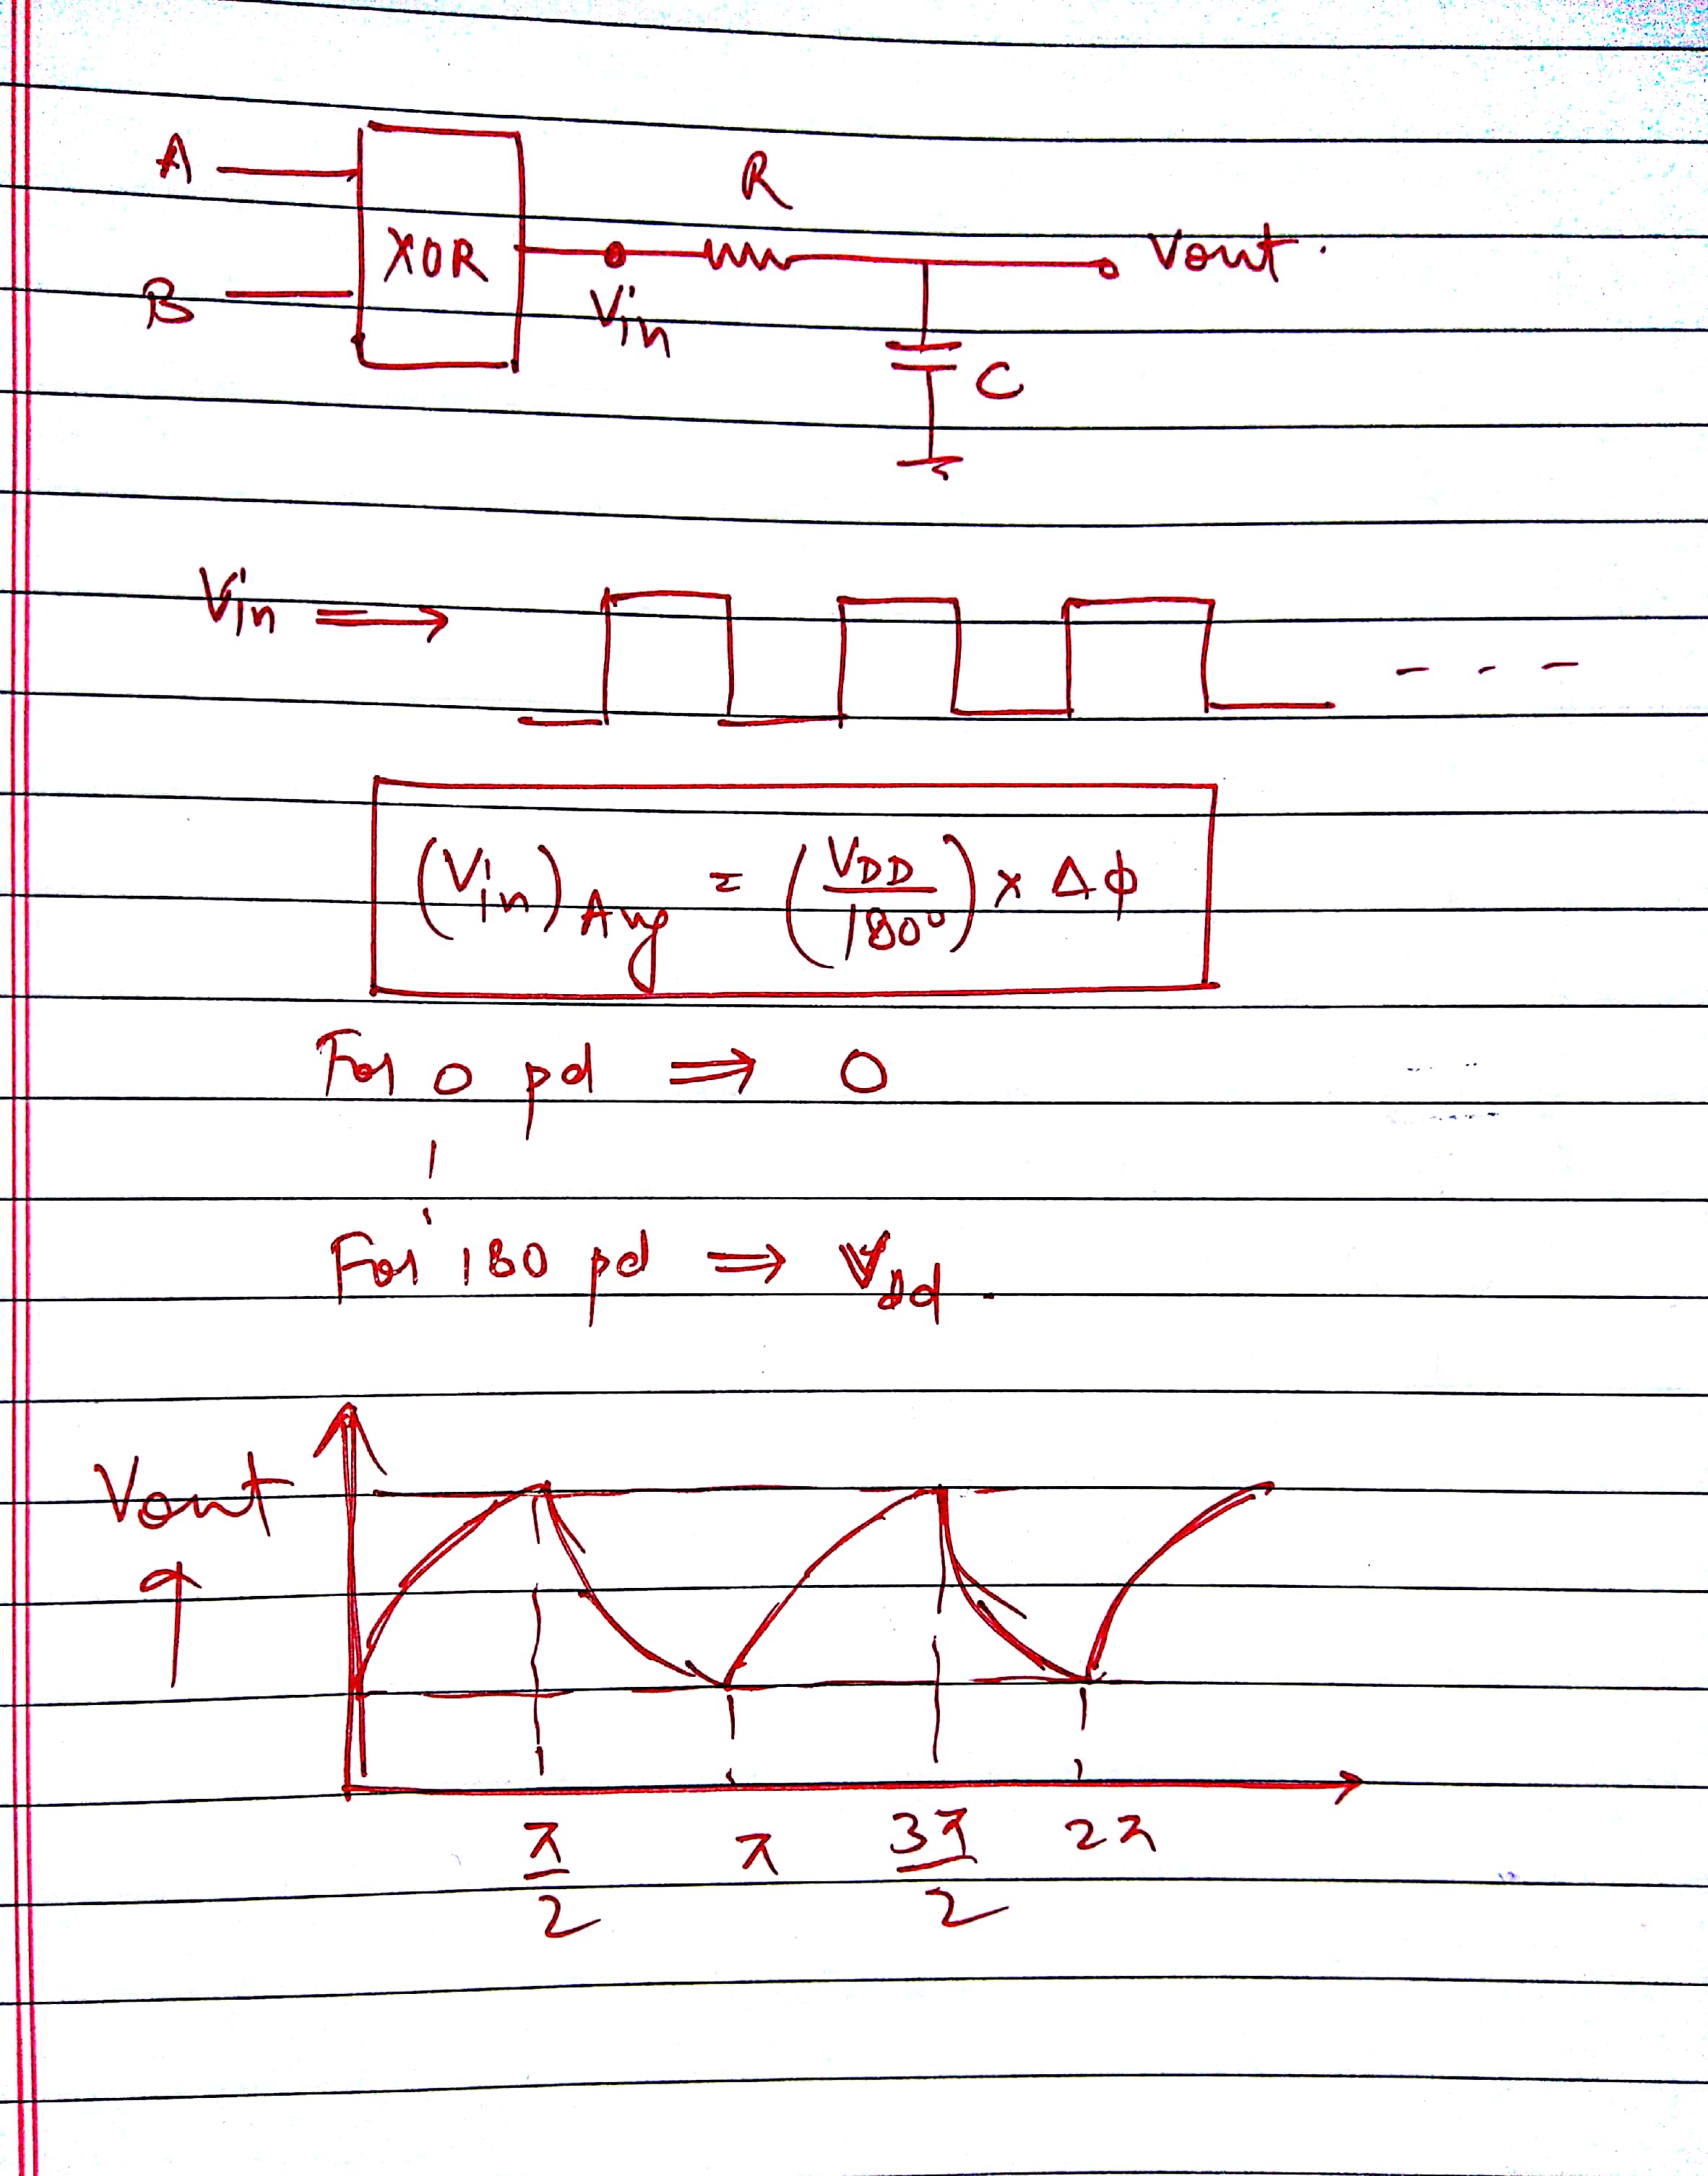 A
R
XOR
Vout.
B
Vin
C
Vin ⇒
(Vin)Avg = (VDD/180°) × Δϕ
For 0 pd ⇒ 0
For 180 pd ⇒ Vdd.
Vout
π/2 π 3π/2 2π